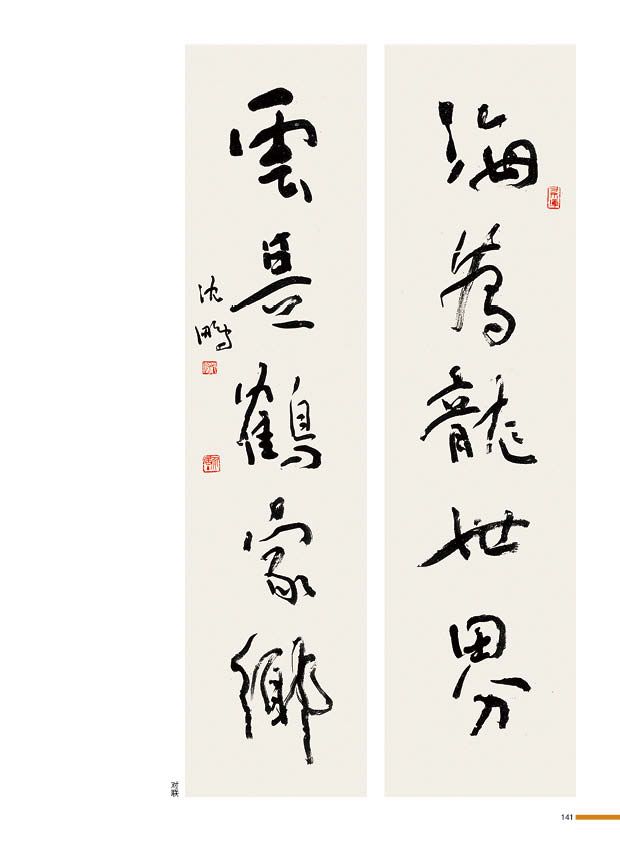 海為龍世界
雲是鶴家鄉
沈鵬
对联
141